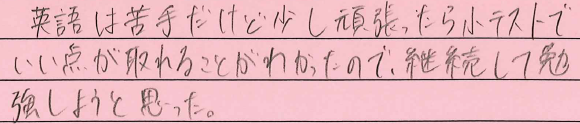 英語は苦手だけど少し頑張ったら小テストで
いい点が取れることがわかったので、継続して勉
強しようと思った。